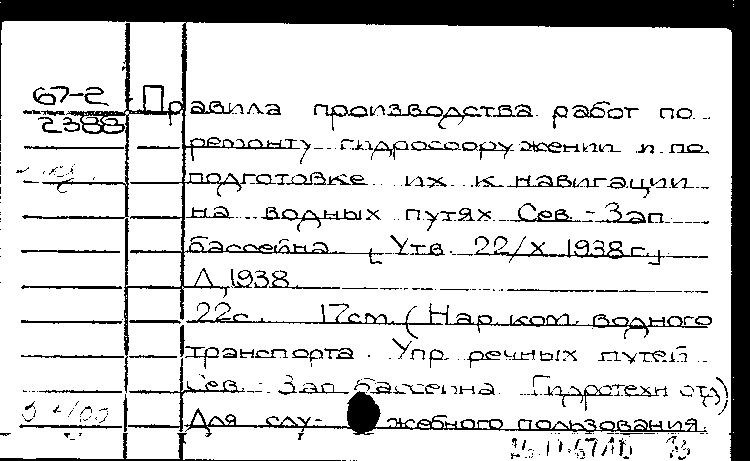 67-2
2388
Правила производства работ по
ремонту гидросооружении и по
подготовке их к навигации
на водных путях Сев-Зап
бассейна [Утв. 22/X 1938 г.]
Л, 1938.
22с. 17см. (Нар. ком. водного
транспорта. Упр речных путей
Сев-Зап бассейна Гидротехн отд)
Для слу- жебного пользования.